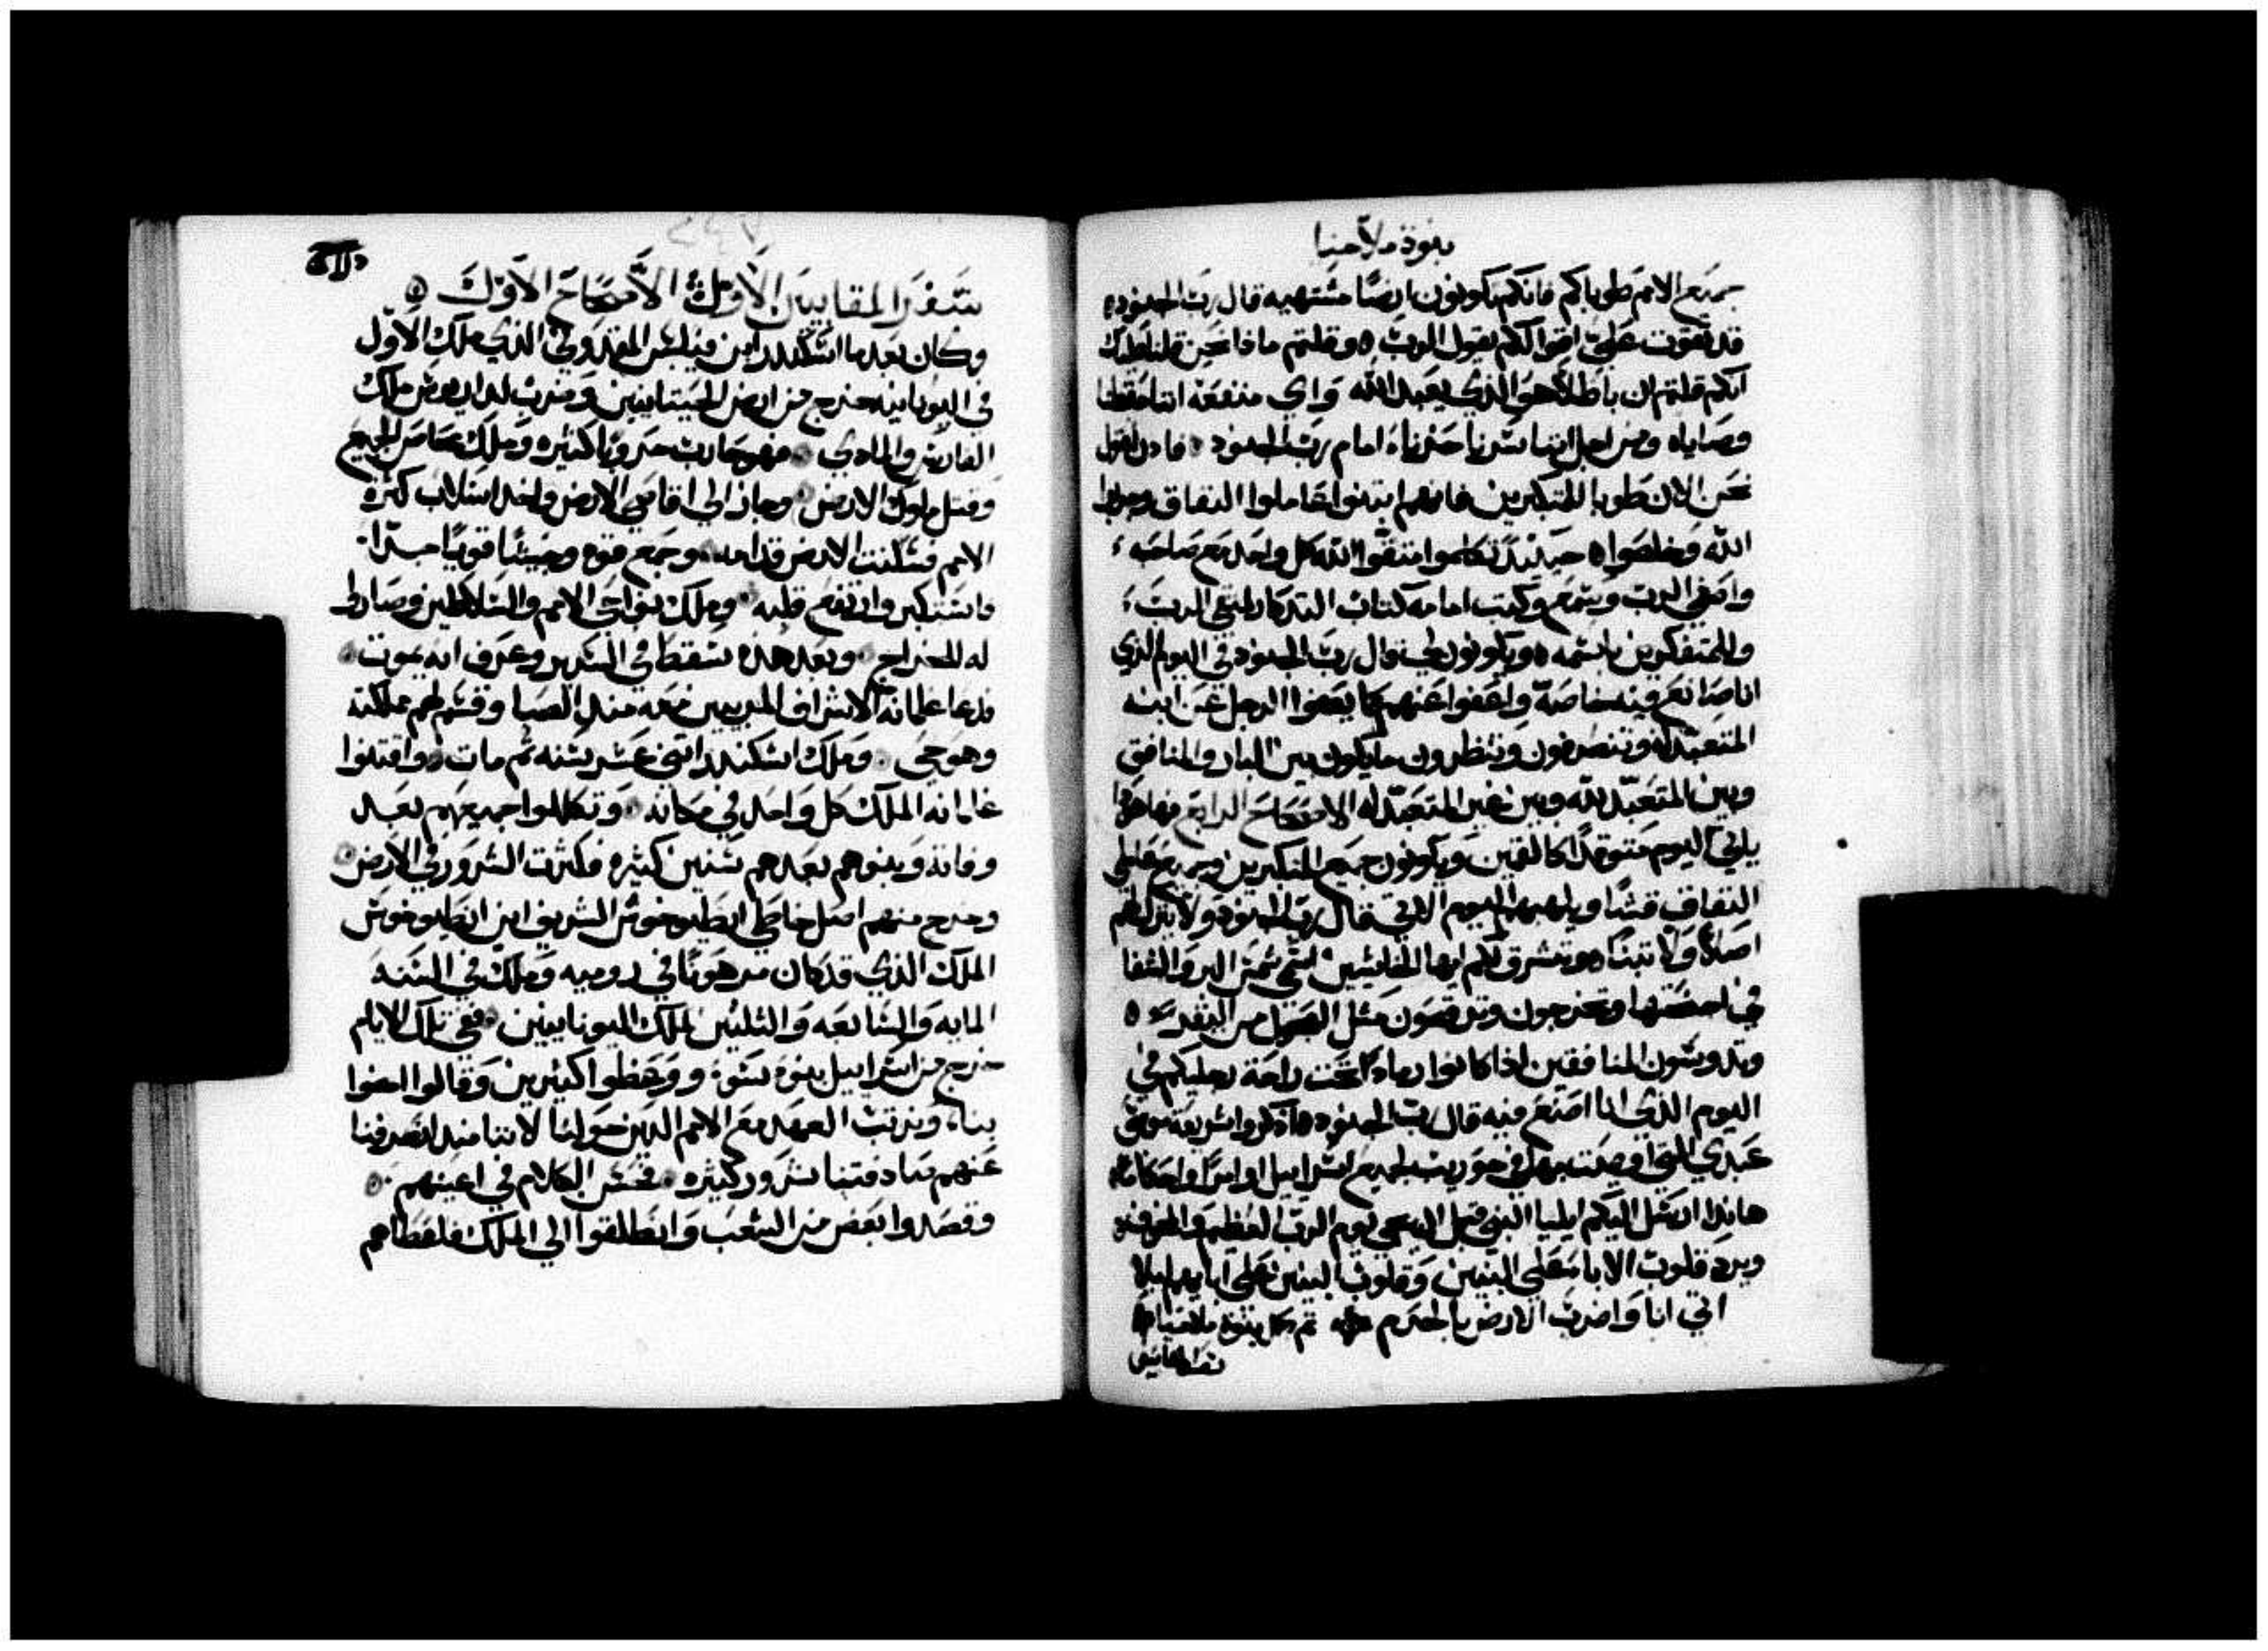 بنوة ملاخيا
جميع الامم طوباكم فانكم تكونون ارضًا مشتهيه قال رب الجنود
قد تقوت عليّ اقوالكم يقول الرب وقلتم ماذا نحن قلنا عليك
انكم قلتم ان باطلًا هو الذي يعبد الله واي منفعه اننا حفظنا
وصاياه ومن اجل اننا سرنا حزنا امام رب الجنود فا دن نقول
نحن الان طوبا للمتكبرين فانهم ابتنوا عاملوا النفاق وجربوا
الله وخلصوا حينيد تكلموا متقوا الله كل واحد مع صاحبه
واصغي الرب وسمع وكتب امامه كتاب التدكار لمتقي الرب
وللمتفكرين باسمه ويكونون لي قال رب الجنود في اليوم الذي
انا صانع فيه خاصة واعفوا عنهم كما يعفوا الرجل عن ابنه
المتعبد له وتنصرفون وتنظرون ما يكون بين البار والمنافق
وبين المتعبد لله وبين غير المتعبد له الاصحاح الرابع فها هودا
ياتي اليوم متوقدًا كالتنين ويكونون جميع المتكبرين وجميع فاعلي
النفاق قشًا ويلهبهم اليوم الاتي قال رب الجنود ولا يترك لهم
اصلًا ولا نبتًا وتشرق لكم ايها الخايفين اسمي شمس البر والشفا
في اجنحتها وتخرجون وترقصون مثل العجول من البقر
وتدوسون المنافقين اذا كانوا رمادًا تحت راحة رجليكم في
اليوم الذي انا اصنع فيه قال رب الجنود اذكروا شريعة موسى
عبدي التي اوصيت بها في حوريب لجميع اسراييل اوامرًا واحكامًا
هانذا ارسل اليكم ايليا النبي قبل ان يجي يوم الرب العظيم والمخوف
ويرد قلوب الابا على البنين وقلوب البنين على ابايهم ليلا
اتي انا واضرب الارض بالحرم تم كل بنوة ملاخيا
سفر المقابيين الاول الاصحاح الاول
وكان بعدما اسكندر ابن فيلبس المقدوني الذي ملك الاول
في اليونانيه خرج من ارض الحيتانيين وضرب لداريوس ملك
الفارس والمادي فهو حارب حروبًا كثيره وملك عناصر الجميع
وقتل ملوك الارض وجاز الي اقاصي الارض واخد اسلاب كثرة
الامم فسكتت الارض قدامه وجمع قوه وجيشًا قويًا جدًا
فاستكبر وارتفع قلبه وملك نواحي الامم والسلاطين وصاروا
له للخراج وبعد هذه سقط في السرير وعرف انه يموت
فدعا غلمانه الاشراف المربيين معه منذ الصبا وقسم لهم مملكته
وهو حي وملك اسكندر اتني عشر سنه ثم مات واقتنوا
غلمانه الملك كل واحد في مكانه وتكللوا جميعهم بعد
وفاته وبنوهم بعدهم سنين كثيره فكثرت الشرور في الارض
وخرج منهم اصل خاطي انطيوخوس الشريف ابن انطيوخوس
الملك الذي قد كان مرهونًا في روميه وملك في السنه
المايه والسابعه والثلثين لملك اليونانيين ففي تلك الايام
خرج من اسراييل بنوه سوء ووعظوا كثيرين وقالوا امضوا
بنا ونرتب العهد مع الامم الدين حولنا لاننا مند انصرفنا
عنهم صادفتنا شرور كثيره فحسن الكلام في اعينهم
وقصدوا بعض من الشعب وانطلقوا الي الملك فاعطاهم